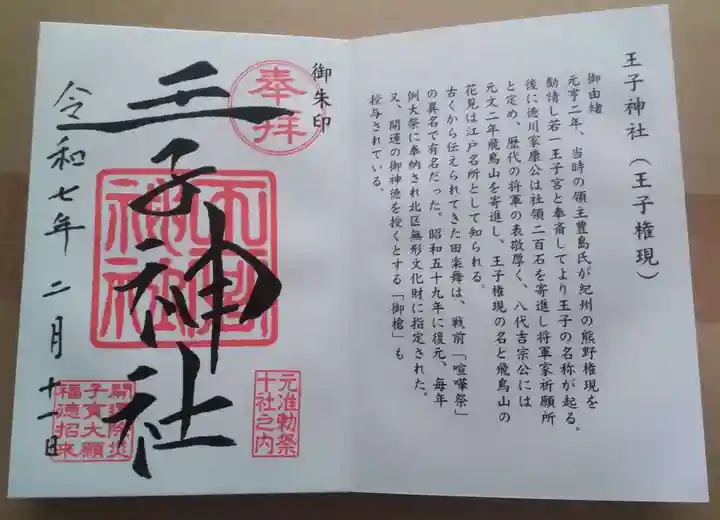 王子神社（王子権現）
御由緒
元亨二年、当時の領主豊島氏が紀州の熊野権現を
勧請し若一王子宮と奉斎してより王子の名称が起る。
後に徳川家康公は社領二百石を寄進し将軍家祈願所
と定め、歴代の将軍の表敬厚く、八代吉宗公には
元文二年飛鳥山を寄進し、王子権現の名と飛鳥山の
花見は江戸名所として知られる。
古くから伝えられてきた田楽舞は、戦前「喧嘩祭」
の異名で有名だった。昭和五十九年に復元、毎年
例大祭に奉納され北区無形文化財に指定された。
又、開運の御神徳を授くとする「御槍」も
授与されている。
御朱印
奉拝
王子神社
王子神社
元准勅祭
十社之内
開運除災
子育大願
福徳招来
令和七年 二月 十一日